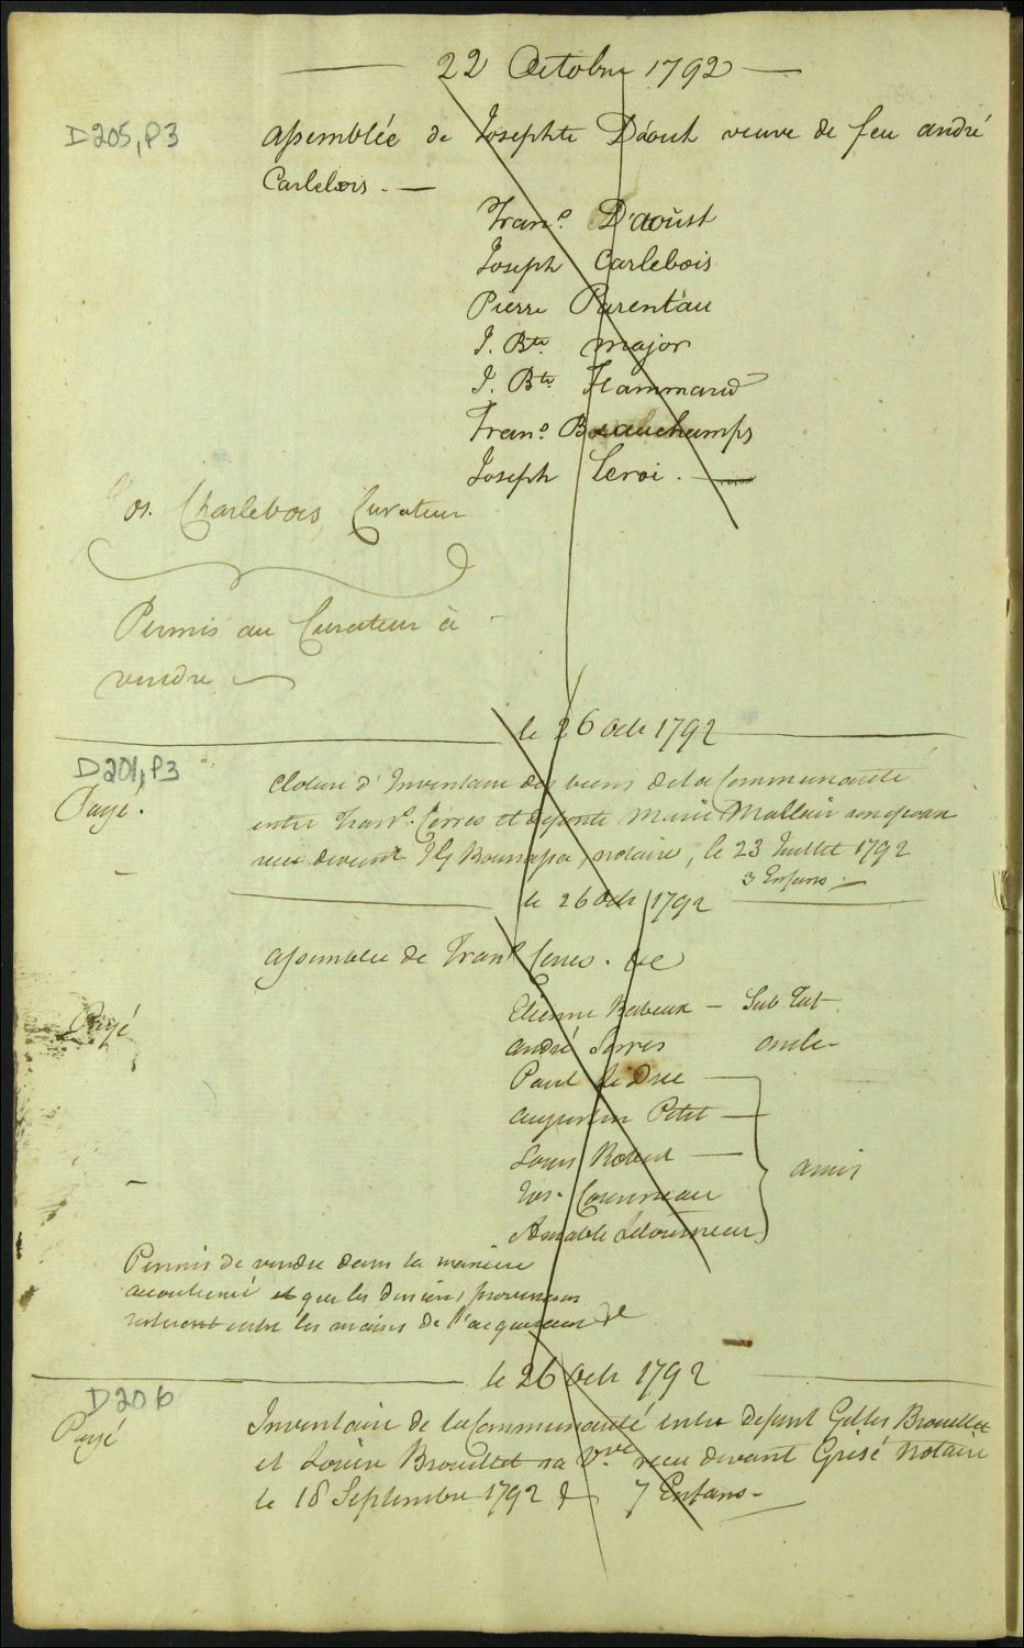 22 Octobre 1792
D205, P3
assemblée de Josephte Dáoust veuve de feu andré
Carlebois.
Fran.s D'aoûst
Joseph Carlebois
Pierre Parentáu
J. Bte major
J. Bte Hammard
Fran.s Beauchamps
Joseph Leroi.
Jos. Charlebois, Curateur
Permis au Curateur à
vendre
le 26 Octe 1792
D201, P3
Payé.
Cloture d'Inventaire des biens de la Communauté
entre Fran.s Serres et defunte Marie Mallair son epouse
recu devant notaire, le 23 Juillet 1792
3 Enfans.
le 26 Octe 1792
assemblée de Frans Serres. &c
Payé
Etienne Babeux - Sub Tut
andré Serres oncle
Paul Le Duc
augustin Petit
Louis Robert
amis
Jos. Cournoiau
Amable Letourneur
Permis de vendre dans la maniere
accoutumé et que les deniers provenans
resteront entre les mains de l'acquereur
le 26 Octe 1792
D206
Payé
Inventaire de la Communauté entre Defunt Gilles Brouillet
et Louise Brouillet sa Vve recu devant Grisé Notaire
le 18 Septembre 1792 & 7 Enfans-